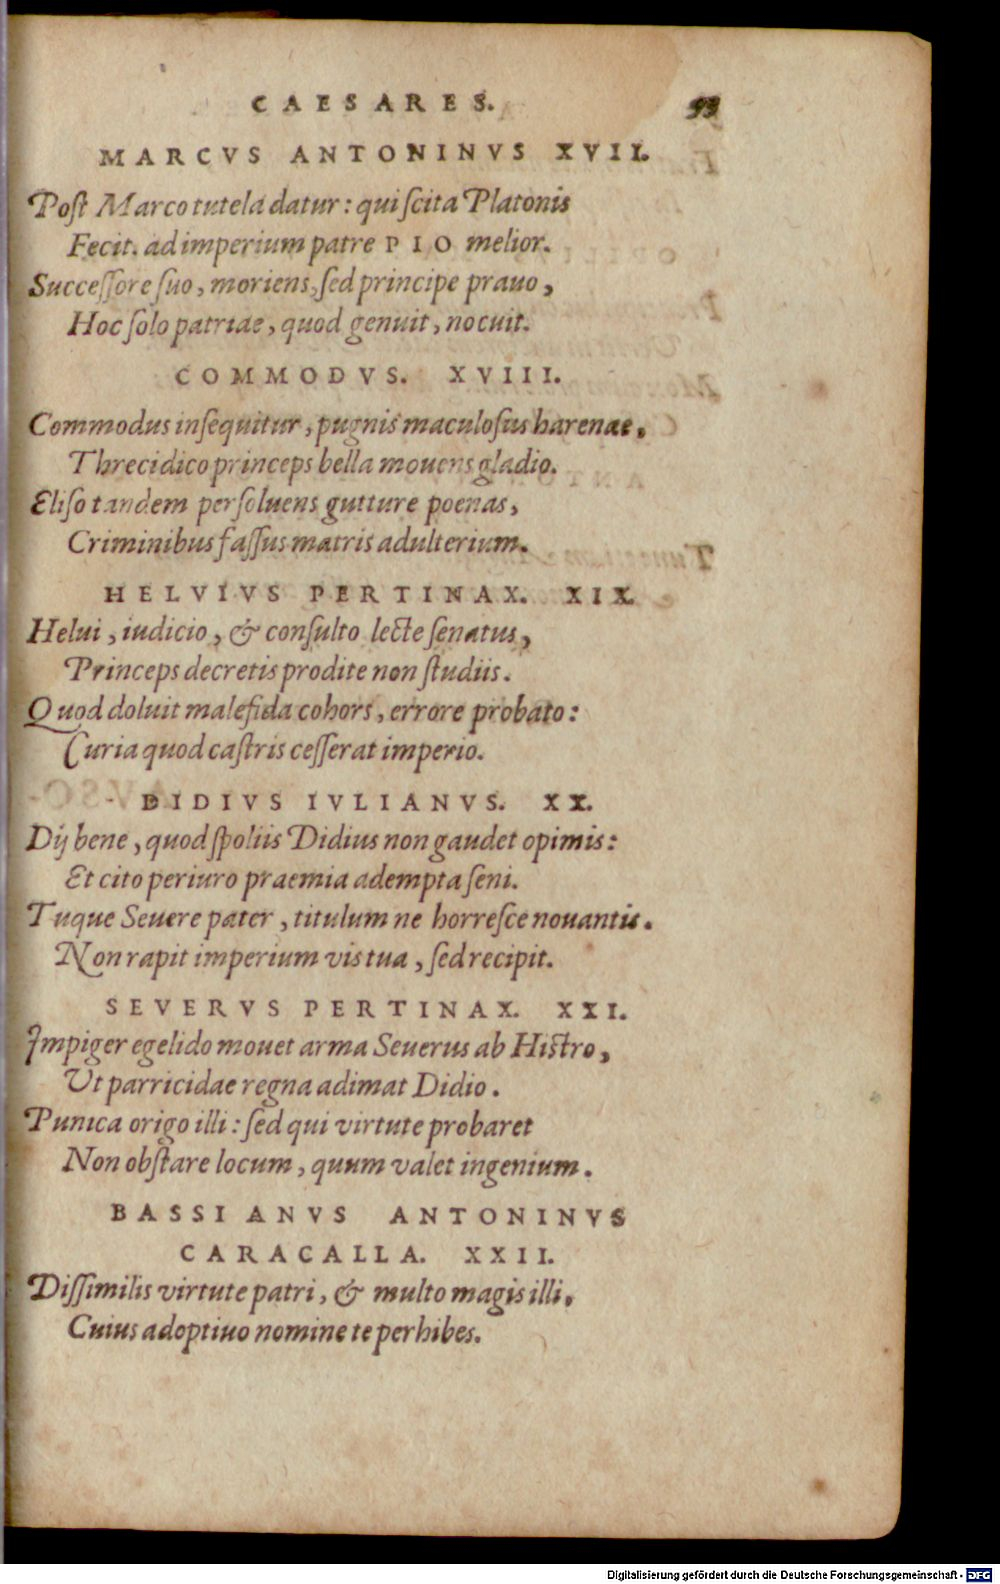 CAESARES. 93
MARCVS ANTONINVS XVII.
Post Marco tutela datur: qui scita Platonis
Fecit. ad imperium patre PIO melior.
Successore suo, moriens, sed principe prauo,
Hoc solo patriae, quod genuit, nocuit.
COMMODVS. XVIII.
Commodus insequitur, pugnis maculosus harenae,
Threcidico princeps bella mouens gladio.
Eliso tandem persoluens gutture poenas,
Criminibus fassus matris adulterium.
HELVIVS PERTINAX. XIX.
Helui, iudicio, & consulto lecte senatus,
Princeps decretis prodite non studiis.
Quod doluit malefida cohors, errore probato:
Curia quod castris cesserat imperio.
DIDIVS IVLIANVS. XX.
Dij bene, quod spoliis Didius non gaudet opimis:
Et cito periuro praemia adempta seni.
Tuque Seuere pater, titulum ne horresce nouantis.
Non rapit imperium vis tua, sed recipit.
SEVERVS PERTINAX. XXI.
Impiger egelido mouet arma Seuerus ab Histro,
Ut parricidae regna adimat Didio.
Punica origo illi: sed qui virtute probaret
Non obstare locum, quum valet ingenium.
BASSIANVS ANTONINVS
CARACALLA. XXII.
Dissimilis virtute patri, & multo magis illi,
Cuius adoptiuo nomine te perhibes.
Digitalisierung gefördert durch die Deutsche Forschungsgemeinschaft - DFG